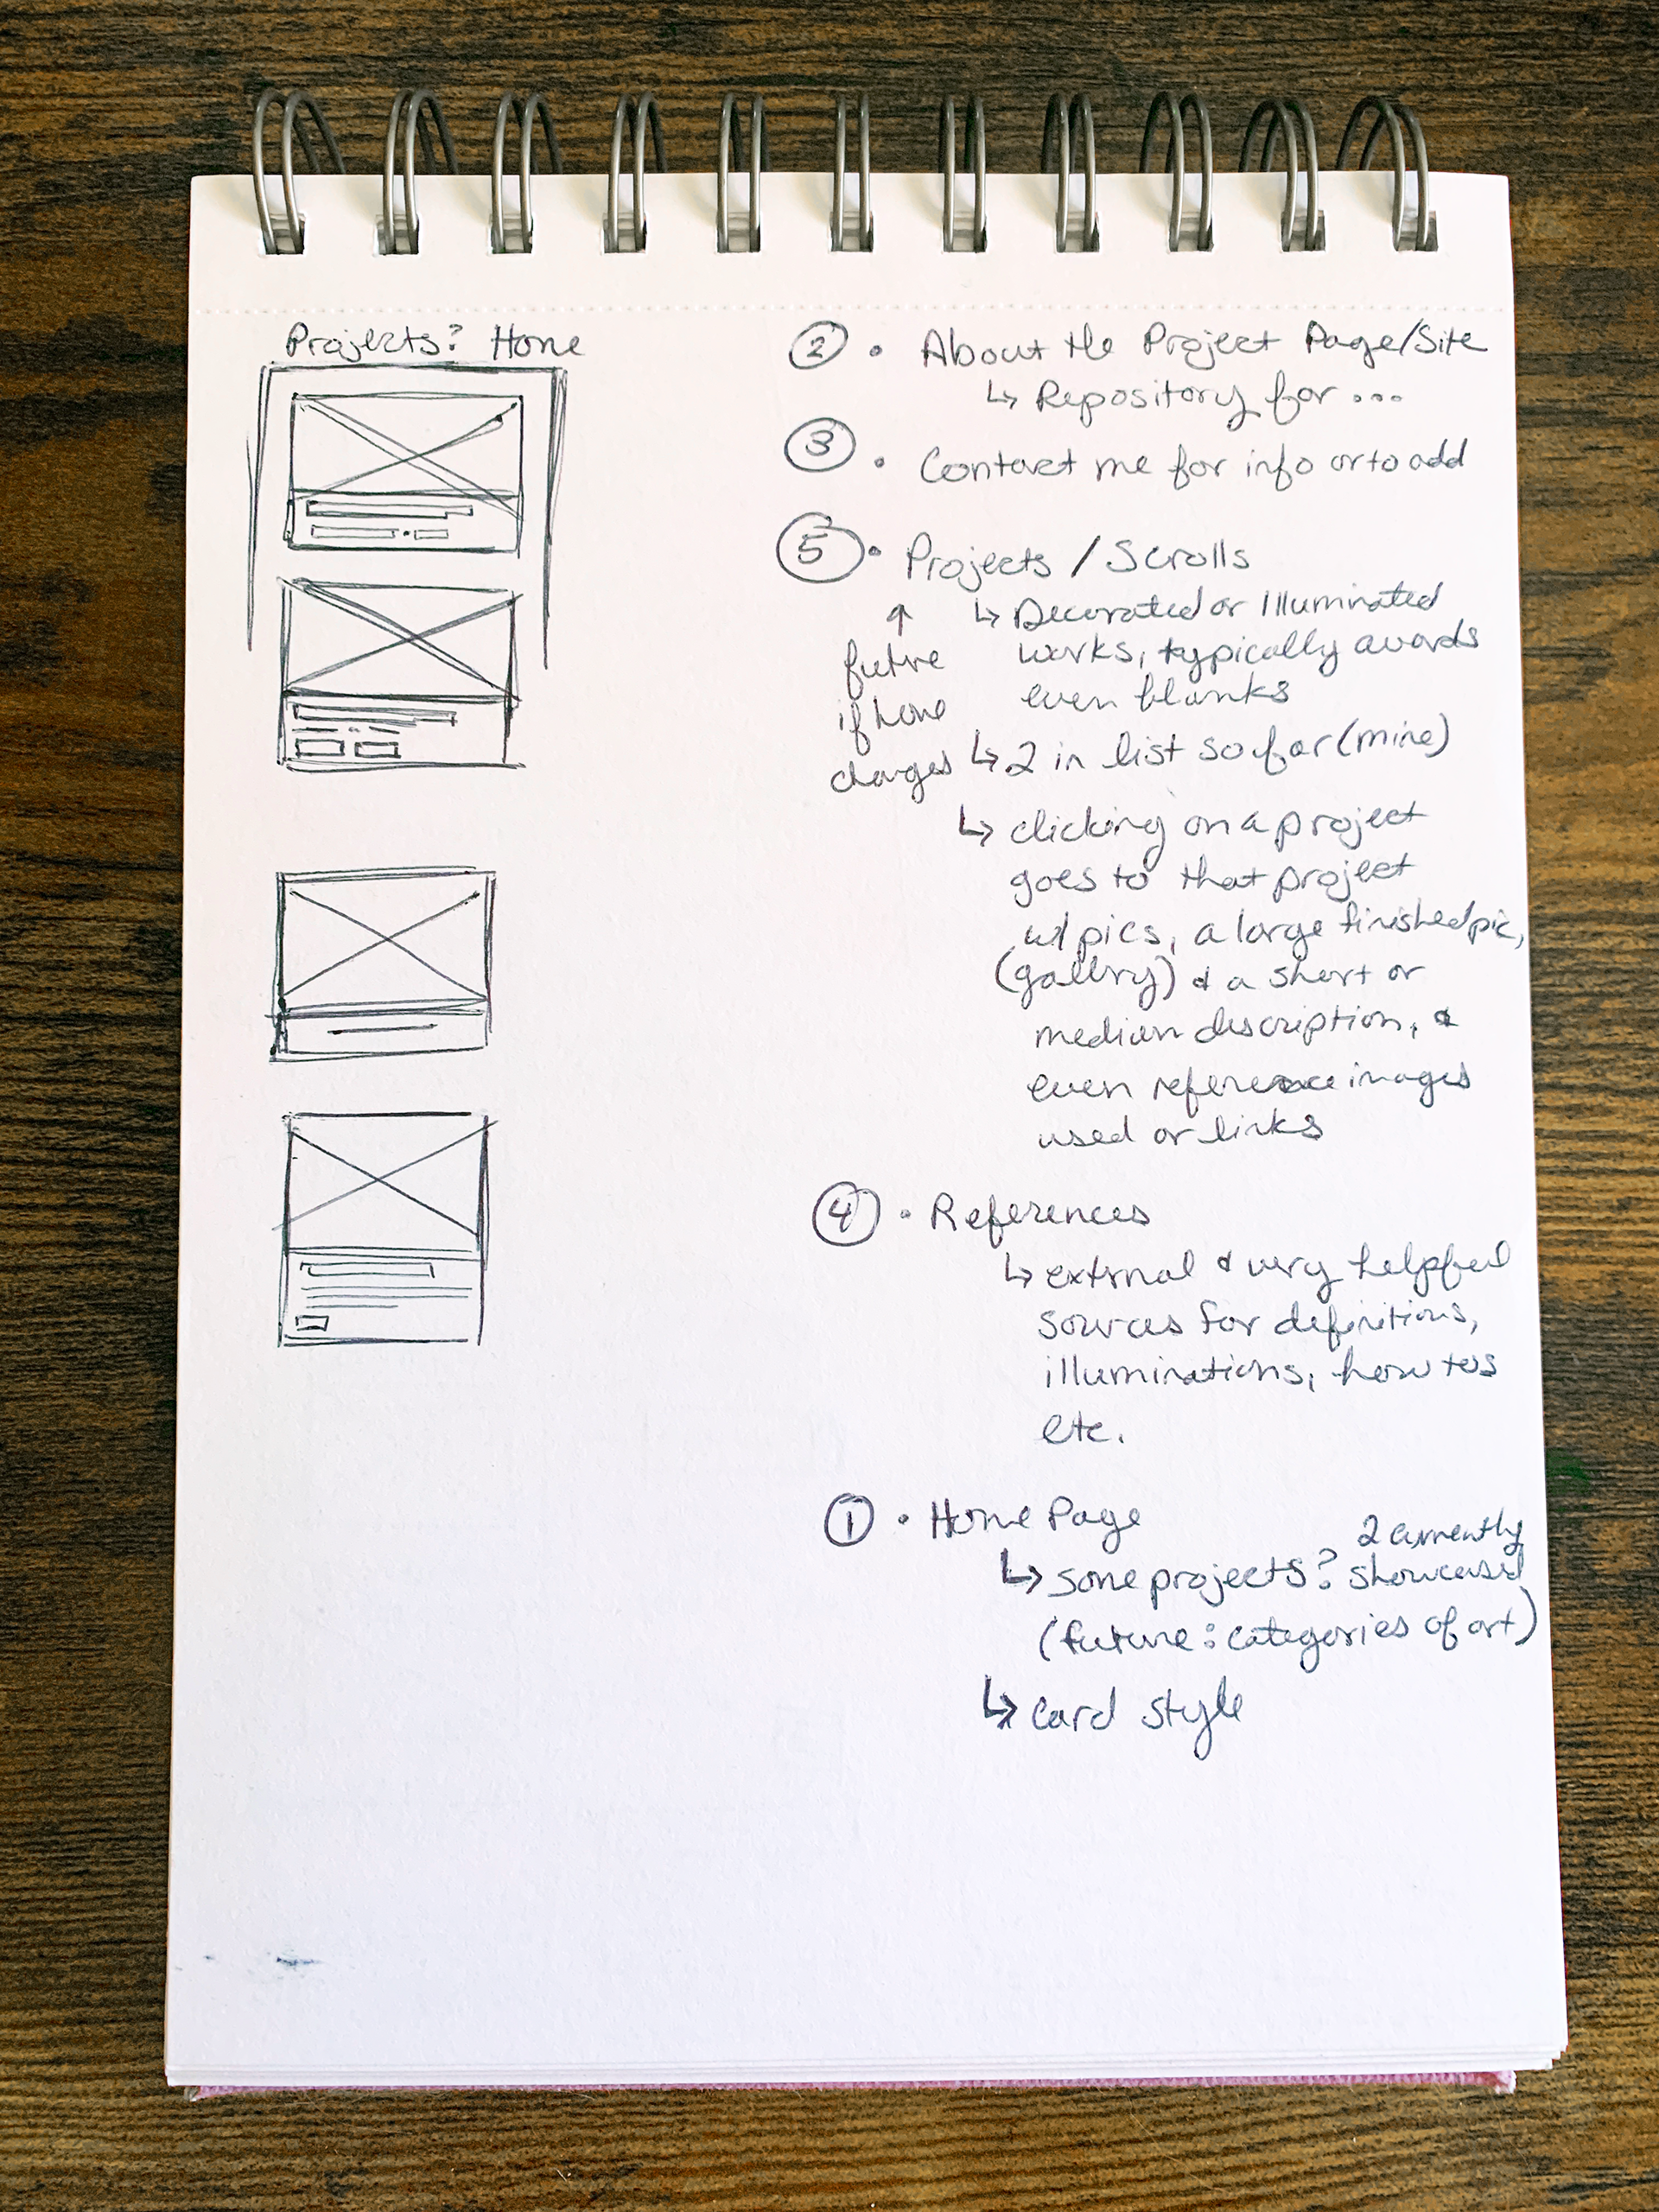 Projects? Home
② • About the Project Page/Site
↳ Repository for ...
③ • Contact me for info or to add
⑤ • Projects / Scrolls
↑
future
if home
changes
↳ Decorated or Illuminated
works, typically awards
even blanks
↳ 2 in list so far (mine)
↳ clicking on a project
goes to that project
w/ pics, a large finished pic,
(gallery) & a short or
median description, &
even reference images
used or links
④ • References
↳ external & very helpful
sources for definitions,
illuminations, how tos
etc.
① • Home Page
↳ some projects? 2 currently showcased
(future: categories of art)
↳ card style